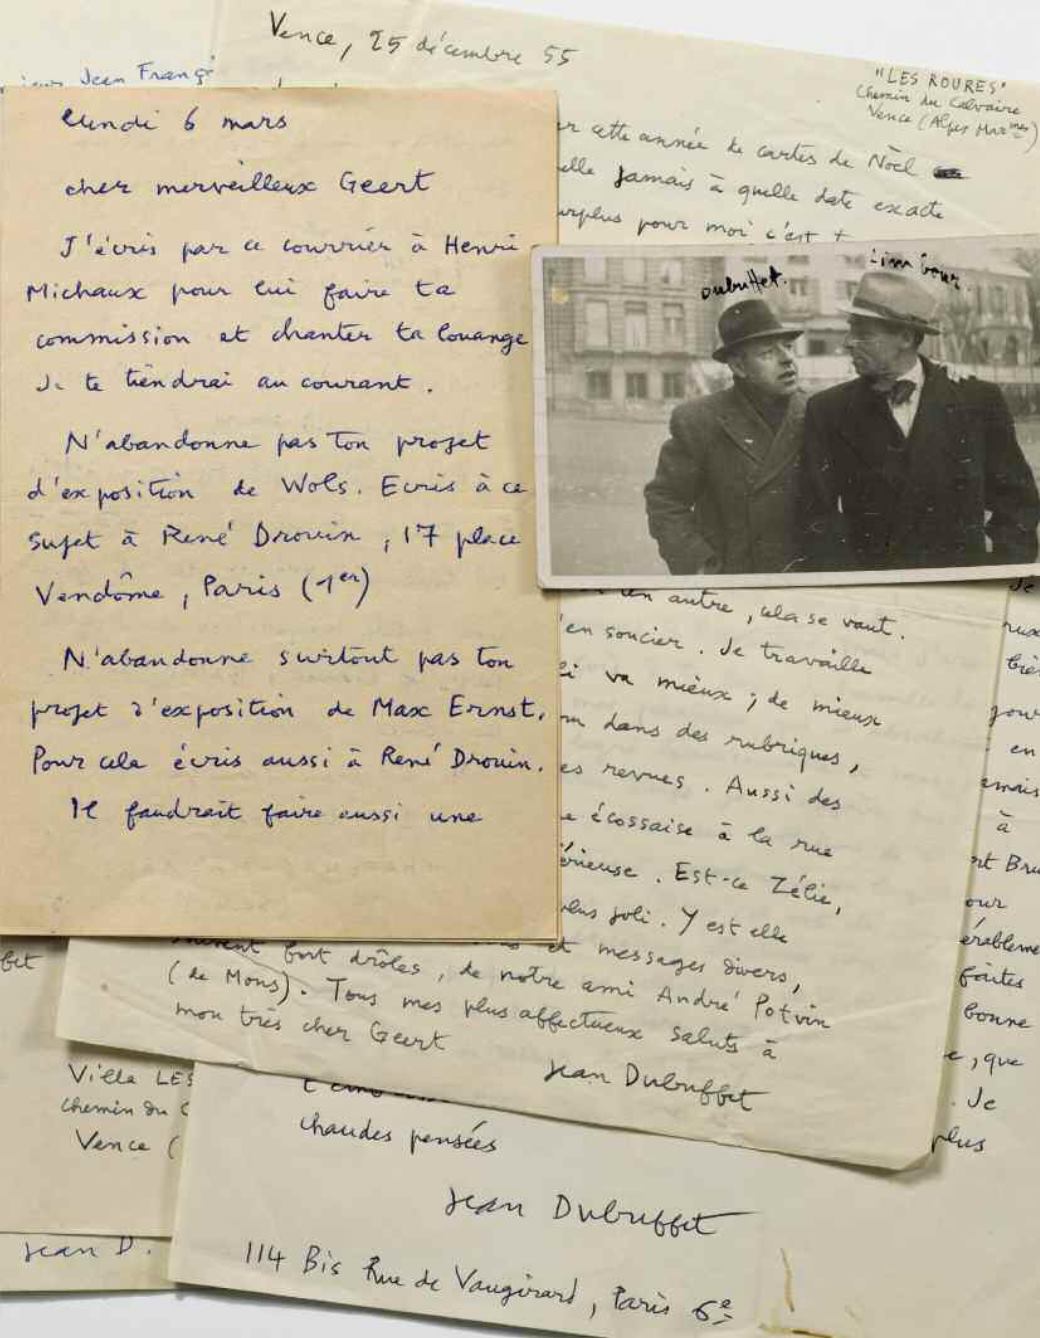 Vence, 25 décembre 55
"LES ROURES"
Chemin du Calvaire
Vence (Alpes Marmes)
Jean Franç
cette année de cartes de Noël
elle jamais à quelle date exacte
pour moi c'est
lundi 6 mars
cher merveilleux Geert
J'écris par ce courrier à Henri
Michaux pour lui faire ta
commission et chanter ta louange
Je te tiendrai au courant.
N'abandonne pas ton projet
d'exposition de Wols. Ecris à ce
sujet à René Drouin, 17 place
Vendôme, Paris (1er)
N'abandonne surtout pas ton
projet d'exposition de Max Ernst.
Pour cela écris aussi à René Drouin.
Il faudrait faire aussi une
Dubuffet.
Limbour.
en autre, cela se vaut.
'en soucier. Je travaille
va mieux ; de mieux
dans des rubriques,
es revues. Aussi des
écossaise à la rue
érieuse. Est-ce Zélie,
joli. Y est elle
et messages divers,
fort drôles, de notre ami André Potvin
(de Mons). Tous mes plus affectueux saluts à
mon très cher Geert
Jean Dubuffet
Je
en
à
rt Bru
our
érableme
faites
bonne
e, que
. Je
plus
Villa LES
Chemin du C
Vence (
Jean D.
chaudes pensées
Jean Dubuffet
114 Bis Rue de Vaugirard, Paris 6e